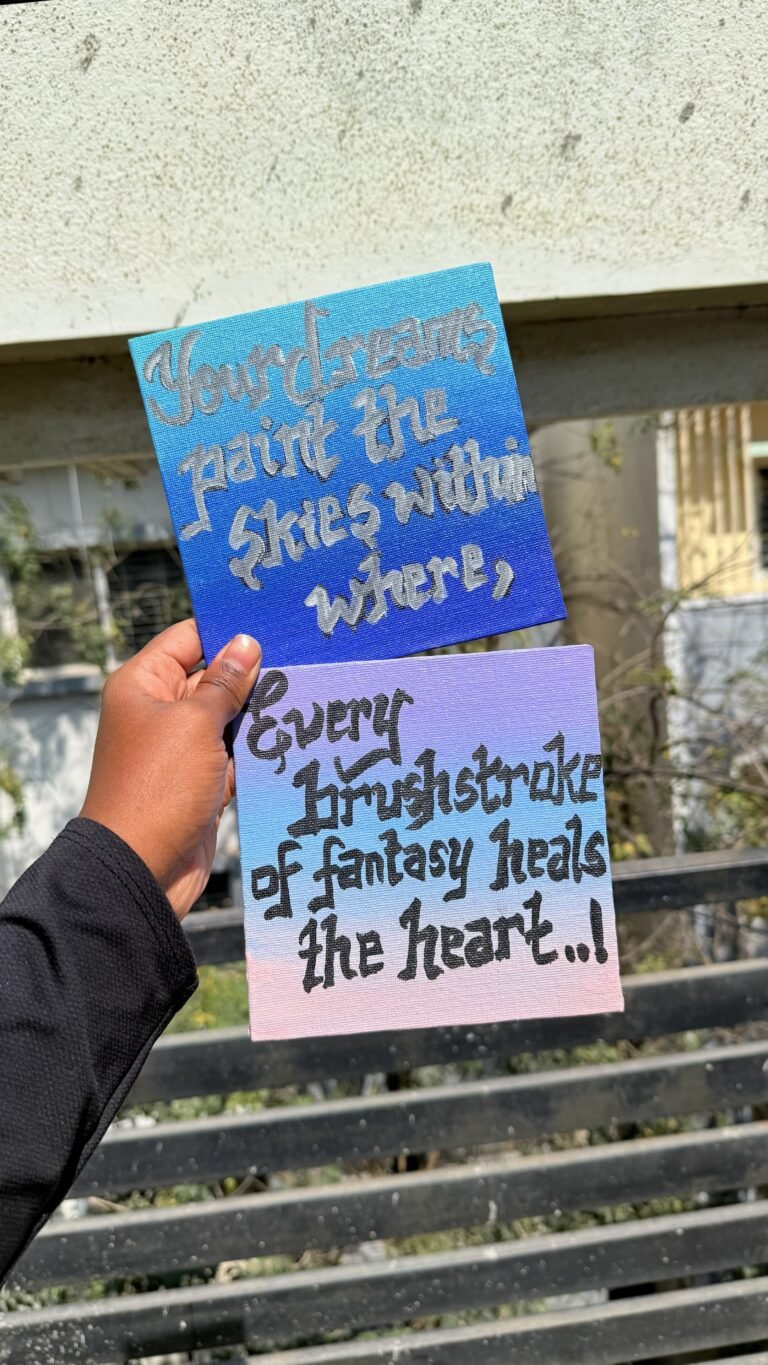 Your dreams
paint the
skies within
where,
Every
brushstroke
of fantasy heals
the heart..!